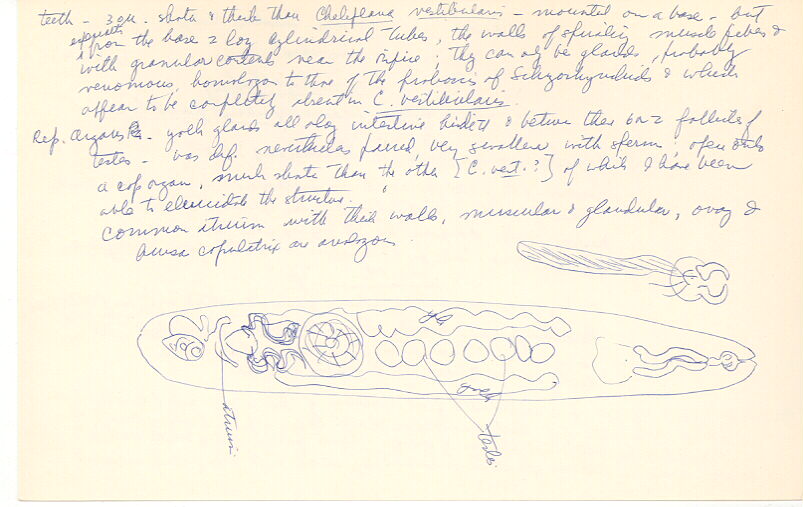 teeth - 3 gu. shorter & thicker than Cheliplana vestibularis - mounted on a base - but
separate
from the base 2 long cylindrical tubes, the walls of spiraling muscle fibers &
with granular contents near the orifice; they can only be glands, probably
venomous, homologous to those of the proboscis of Schizorhynchids & which
appear to be completely absent in C. vestibularis.
Rep. organs - yolk glands all along intestine & between them 6 or 7 follicles of
testes - vas def. nevertheless paired, very swollen with sperm; open into
a cop organ, much shorter than the other [C. vest.?] of which I have been
able to elucidate the structure.
common atrium with thick walls, muscular & glandular, ovary &
bursa copulatrix are analogous.
yolk
yolk
atrium
testes